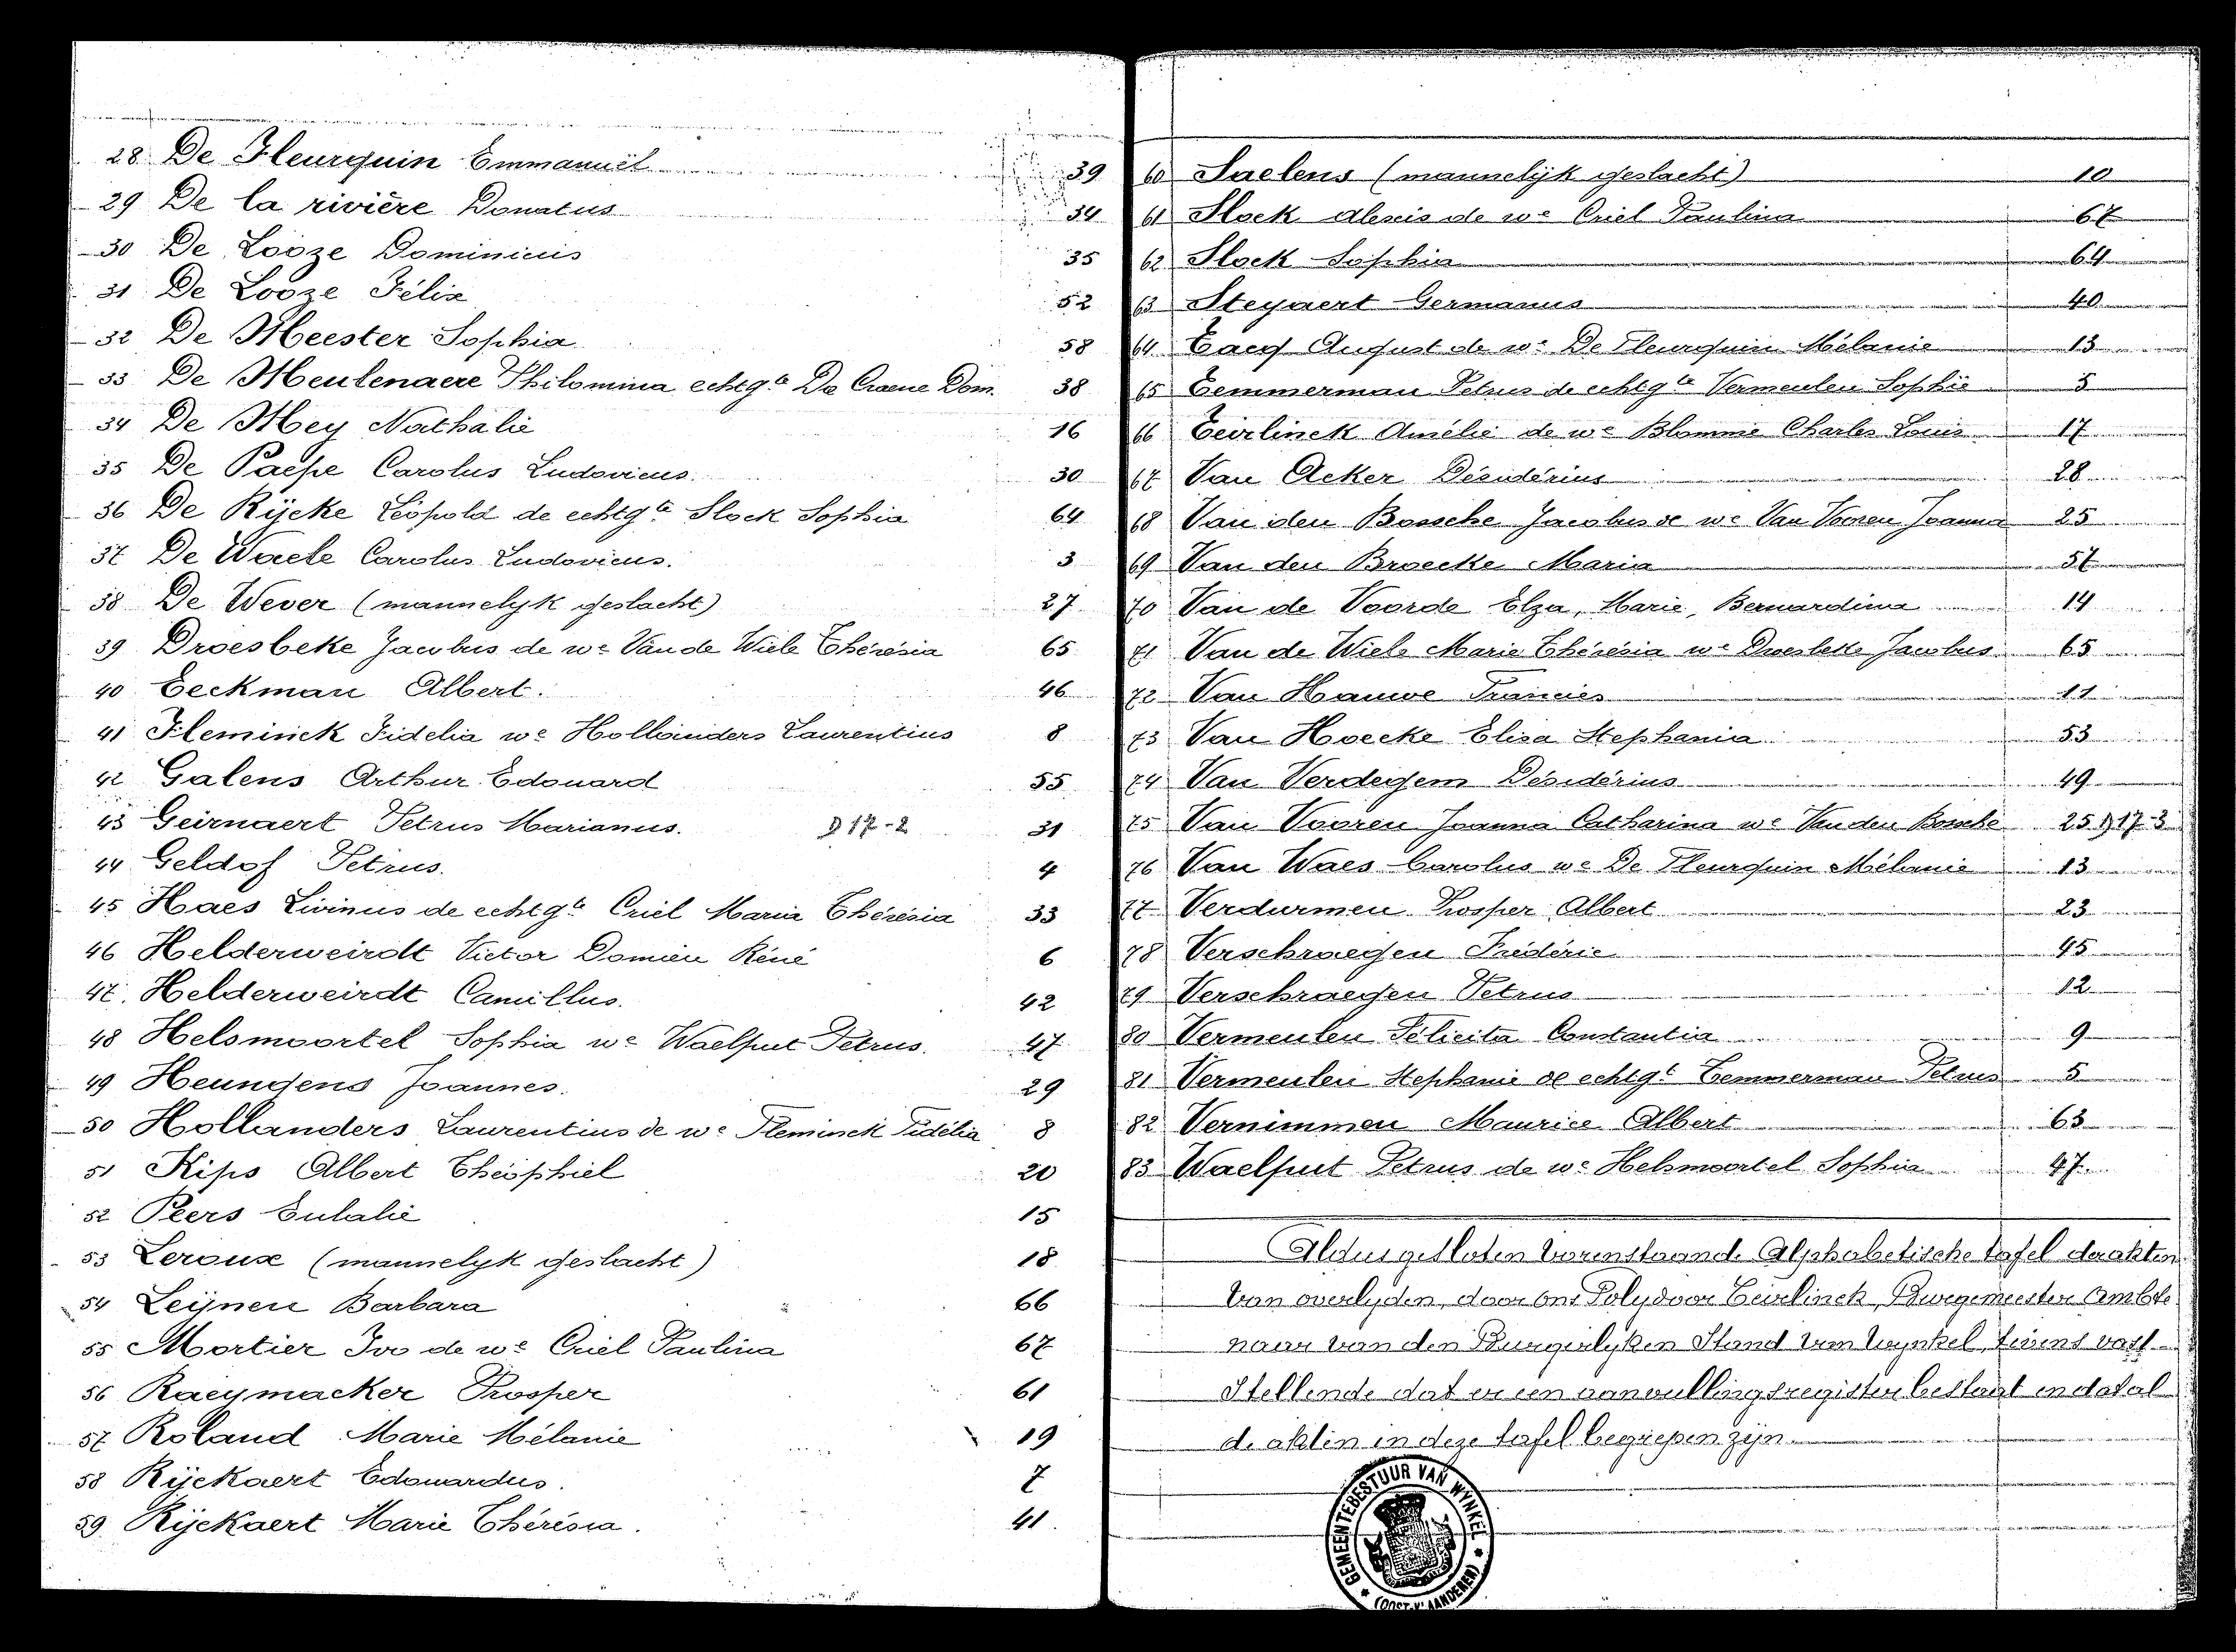 28 De Fleurquin Emmanuël 39
29 De la rivière Donatus 34
30 De Looze Dominicus 35
31 De Looze Félix 52
32 De Meester Sophia 58
33 De Meulenaere Philomina echtg.te De Craene Dom. 38
34 De Mey Nathalie 16
35 De Paepe Carolus Ludovicus. 30
36 De Rijcke Léopold de echtg.te Slock Sophia 64
37 De Waele Carolus Ludovicus. 3
38 De Wever (mannelyk geslacht) 27
39 Droesbeke Jacobus de we Van de Wiele Thérésia 65
40 Eeckman Albert. 46
41 Fleminck Fidelia we Hollanders Laurentius 8
42 Galens Arthur Edouard 55
43 Geirnaert Petrus Marianus. D 17-2 31
44 Geldof Petrus. 4
45 Haes Livinus de echtg.te Criel Maria Thérésia 33
46 Helderweirdt Victor Domien Réné 6
47. Helderweirdt Camillus. 42
48 Helsmoortel Sophia we Waelput Petrus. 47
49 Heungens Joannes. 29
50 Hollanders Laurentius de we Fleminck Fidélia 8
51 Kips Albert Théophiel 20
52 Peers Eulalie 15
53 Leroux (mannelyk geslacht) 18
54 Leijnen Barbara 66
55 Mortier Ivo de we Criel Paulina 67
56 Raeymacker Prosper 61
57 Roland Marie Mélanie 19
58 Rijckaert Edouardus. 7
59 Rijckaert Marie Thérésia. 41
60 Saelens (mannelijk geslacht) 10
61 Slock Alexis de we Criel Paulina 67
62 Slock Sophia 64
63 Steyaert Germanus 40
64 Taeg August de we De Fleurquin Mélanie 13
65 Temmerman Petrus de echtg te Vermeulen Sophie 5
66 Teirlinck Amélie de we Blomme Charles Louis 17
67 Van Acker Désidérius 28
68 Van den Bossche Jacobus de we Van Vooren Joanna 25
69 Van den Broecke Maria 57
70 Van de Voorde Elza, Marie, Bernardina 14
71 Van de Wiele Marie Thérésia we Droesbeke Jacobus 65
72 Van Hauwe Francies 11
73 Van Hoecke Elisa Stephania 53
74 Van Verdegem Désidérius 49
75 Van Vooren Joanna Catharina we Van den Bossche 25 D 17-3
76 Van Waes Carolus we De Fleurquin Mélanie 13
77 Verdurmen Prosper Albert 23
78 Verschraegen Frédéric 45
79 Verschraegen Petrus 12
80 Vermeulen Félicita Constantia 9
81 Vermeulen Stephanie de echtg.te Temmerman Petrus 5
82 Vernimmen Maurice Albert 63
83 Waelput Petrus de we Helsmoortel Sophia 47
Aldus gesloten vorenstaande Alphabetische tafel der akten
van overlyden, door ons Polydoor Teirlinck, Burgemeester Ambte
naar van den Burgerlyken Stand van Wynkel, tevens vast-
stellende dat er een aanvullingsregister bestaat en dat al
de akten in deze tafel begrepen zyn.
GEMEENTEBESTUUR VAN WYNKEL
(OOST-VLAANDEREN)